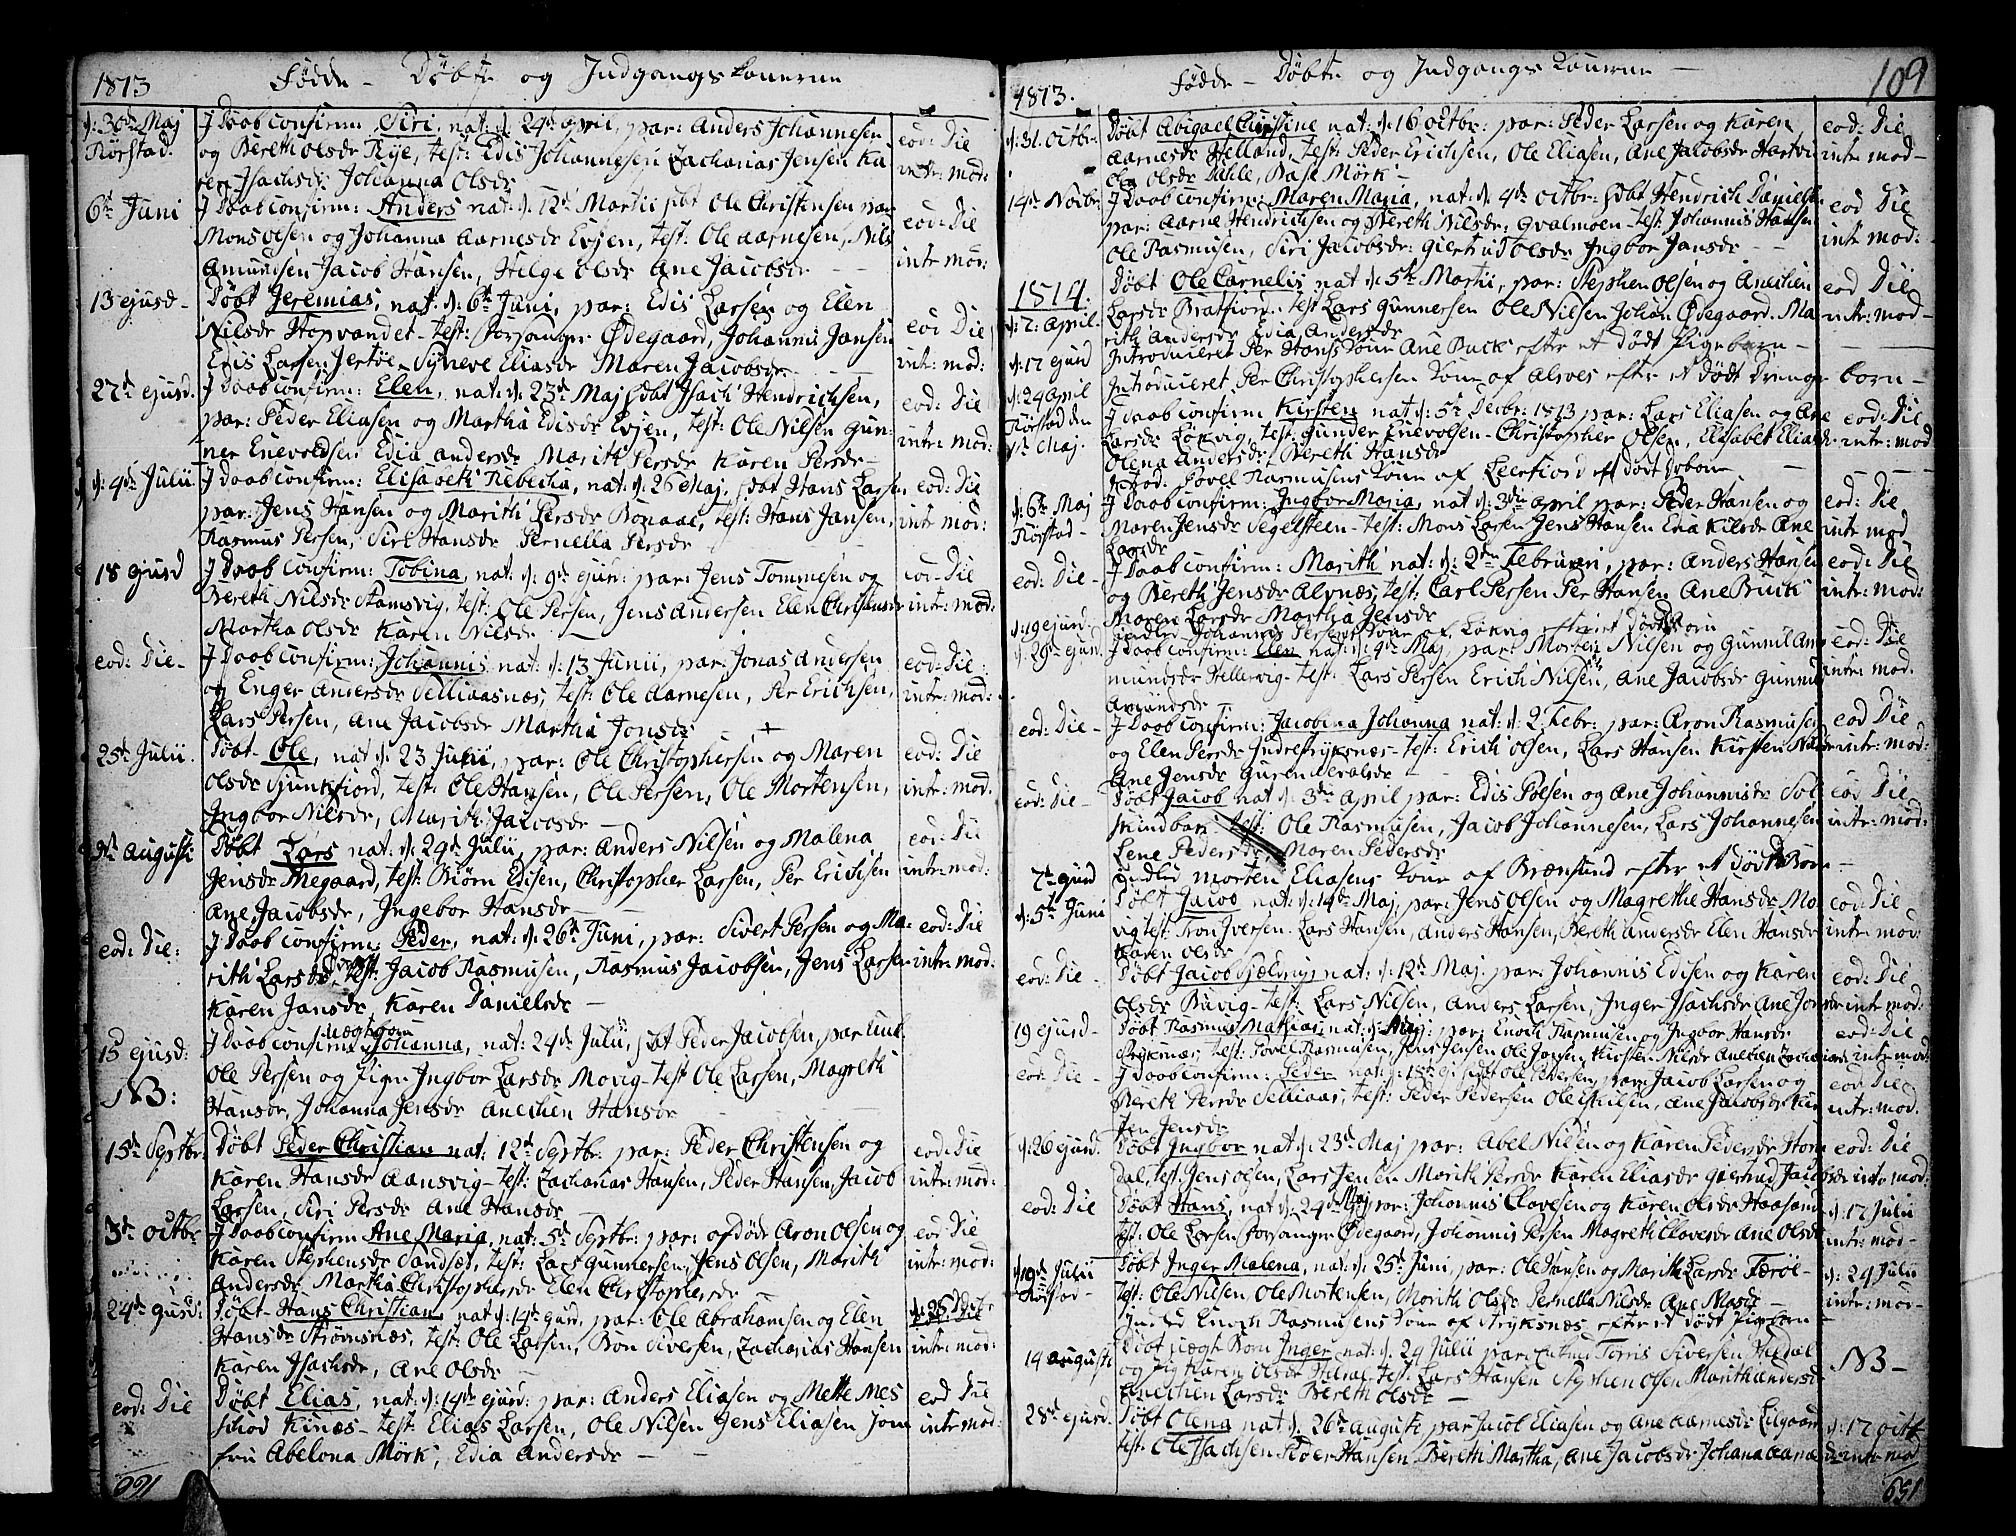 1813 Födde – Döbte og Indgangs Konerne
d: 30d Maj J Daab confirm: Siri, nat: d: 24de april, par: Anders Johannesen eod: Die
Rörstad. og Bereth Olsdr Rye, test: Edis Johannesen Zacharias Jensen Ka intr: mod:
ren Isachsdr Johanna Olsdr
6te Juni J Daab confirm: Anders nat: d: 12d Martii dbt Ole Christensen par eod: Die
Mons Olsen og Johanna Aarnesdr Evjen, test: Ole Aarnesen, Nils intr: mod:
Amundsen Jacob Hansen, Helge Olsdr Ane Jacobsdr
13 ejusd – Döbt Jeremias, nat: d: 6te Juni, par: Edis Larsen og Elen eod Die
Nilsdr Hopvandet – test: Forsanger Ødegaard, Johannis Jansen intr: mod:
Edis Larsen Jertöe, Synneve Eliasdr Maren Jacobsdr
27d ejusd. J Daab confirm: Elen, nat: d: 23d Maj dbt Isach Hendrichsen, eod: Die
par: Peder Eliasen og Martha Edisdr Evjen, test: Ole Nilsen Gun: intr: mod:
ner Enevoldsen Edia Andersdr Marith Persdr Karen Persdr –
d: 4de Julii J Daab confirm: Elisabeth Rebecha, nat: d: 26 Maj, dbt Hans Larsen eod: Die
par: Jens Hansen og Marith Persdr Bonaae, test: Hans Jansen, intr: mod:
Rasmus Persen, Siri Hansdr Pernella Persdr
18 ejusd J Daab confirm: Tobina, nat: d: 9de ejusd: par: Jens Tommesen og eod Die
Bereth Nilsdr Stamsvig, test: Ole Persen, Jens Andersen Elen Christensdr intr: mod:
Martha Olsdr Karen Nilsdr
eod: Die – J Daab confirm: Johannis, nat: d: 13 Junii, par: Jonas Andersen eod: Die:
og Enger Andersdr Selliaasnæs, test: Ole Aarnesen, Per Erichsen, intr: mod:
Lars Persen, Ane Jacobsdr Martha Jonsdr
25d Julii. Döbt Ole, nat d: 23 Julii, par: Ole Christophersen og Maren eod: Die
Olsdr Sjunkfiord, test: Ole Hansen, Ole Persen, Ole Mortensen, intr: mod.
Ingbor Nilsdr, Marith Jacobsdr
Augusti Döbt Lars nat: d: 29de Julii, par: Anders Nilsen og Malena eod: Die
Jensdr, test: Biörn Edisen, Christopher Larsen, Per Erichsen intr: mod:
Ane Jacobsdr, Ingebor Hansdr
eod: Die: J Daab confirm: Peder, nat: d: 26d Juni, par: Sivert Persen og Ma: eod: Die
rith Larsdr, test: Jacob Rasmusen, Rasmus Jacobsen, Jens Larsen intr: mod:
Karen Jansdr Karen Danielsdr –
15 ejusd: J Daab confirm: uægte barn Johanna, nat: 24de Julii, dbt Peder Jacobsen, par
NB: Ole Persen og Pigen Ingbor Larsdr Movig – test Ole Larsen, Magreth
Hansdr, Johanna Jensdr Anechen Hansdr
15d Septbr: Döbt Peder Christian nat: 12d Septbr: par: Peder Christensen og eod: Die
Karen Hansdr Aansvig – test: Zacharias Hansen, Peder Hansen, Jacob intr: mod:
Larsen, Siri Persdr Ane Hansdr
3d Octbr J Daab confirm Ane Maria, nat: 5d Septbr: par: afdöde Aron Olsen og eod: Die
Karen Stephensdr Sandsæt, test: Lars Gunnersen, Jens Olsen, Marith intr: mod:
Andersdr Martha Christophersdr Elen Christophersdr
24de ejusd: Döbt Hans Christian nat d: 14de ejusd, par: Ole Abrahamsen og Elen
Hansdr Strömsnæs, test: Ole Larsen, Bön Siversen, Zacharias Hansen intr: mod:
Karen Isachsdr, Ane Olsdr
eod: Die Döbt Elias, nat: d: 14de ejusd: par: Anders Eliasen og Mette Mes eod Die
schiod Kinæs – test: Elias Larsen, Ole Nilsen Jens Eliasen Jom intr: mod:
fru Abelona Mörk, Edia Andersdr –
1813. Födde – Döbte og Indgangs Konerne – 109
d: 31. Octbr. Döbt Abigael Christine nat: d: 16 Octbr: par: Peder Larsen og Karen eod: Die
Aarnesdr Helland, test: Peder Erichsen, Ole Eliasen, Ane Jacobsdr intr: mod –
Olsdr Dahle, Mörk –
14de Novbr. J Daab confirm: Maren Maria, nat: d: 4de Octbr: dbt Hendrich Danielsen eod Die
par: Aarne Hendrichsen og Bereth Nilsdr: Qvalmoen – test: Johannis Hansen intr mod: –
Ole Rasmusen, Siri Jacobsdr: Giertrud Olsdr Ingbor Jansdr –
1814. Döbt Ole Cornelis nat d: 5te Martii, par: Stephen Olsen og Anechen eod Die
d: 2. April. Larsdr Bratfiord – test Lars Gunnersen Ole Nilsen Johan Ødegaard. Ma intr: mod –
rith Andersdr Edia Andersdr
d: 17 ejusd Introduceret Per Hans Kone Ane Buck efter et dödt Pigebarn –
d: 24 April Introduceret Per Christophersen Kone af Alsvos efter et dödt Drenge born –
Rörstad den J Daab confirm Kirsten nat: d: 5te Decbr: 1813 par: Lars Eliasen og Ane eod: Die
1te Maj. Larsdr Lökvig, test: Gunder Enevolsen – Christopher Olsen Elisabet Eliasdr intr: mod
Olena Andersdr Bereth Hansdr
Introd: Povel Rasmusens Kone af Leerfiord
d: 6te Maj J Daab confirm: Ingbor Maria, nat d: 3die April par: Peder Hansen og eod: Die
Rörstad – Maren Jensdr Segelsteen – test: Mons Larsen Jens Hansen Edia Nilsdr Ane intr mod
Larsdr
eod: Die – J Daab confirm: Marith nat: d: 2den Februari, par: Anders Hansen eod: Die
og Bereth Jensdr Alsvos, test: Carl Persen Per Hansen Ane Buck intr: mod:
Maren Larsdr Martha Jensdr
d: 19 ejusd – Johannis Persens Kone af Lökvig efter et död Barn
d: 29de ejusd. J Daab confirm: Elen nat: d: 4de Maj par: Morten Nilsen og Gunnil Am eod: Die
mundsdr Hellervig – test: Lars Persen Erich Nilsen, Ane Jacobsdr Gunnil intr: mod.
Amundsdr
eod: Die – J Daab confirm: Jacobina Johanna nat: d: 2 Febr: par: Aron Rasmusen eod Die
og Elen Persdr Indrestryksnæs – test: Erich Olsen, Lars Hansen Kirsten Nilsdr intr: mod:
Ane Jensdr Guren
eod: Die – Döbt Jacob nat d: 3die April par: Edis Polsen og Ane Johannisdr Sol eod Die
skindbak – test: Ole Rasmusen, Jacob Johannesen, Lars Johannesen intr: mod:
Lene Pedersdr, Maren Pedersdr
7te ejusd Indled Morten Eliasens Kone af Brænsund efter et dödt Barn –
d: 5te Juni Döbt Jacob nat: d: 14de Maj, par: Jens Olsen og Magrethe Hansdr Mo eod: Die
vig test: Tron Iversen. Lars Hansen, Anders Hansen, Bereth Andersdr Elen Hansdr intr: mod:
Karen Olsdr
eod: Die – Döbt Jacob nat: d: 12te Maj. par: Johannis Edisen og Karen eod: Die
Olsdr Buvig – test: Lars Nilsen, Anders Larsen, Inger Isachsdr Ane Jonsdr intr mod:
19 ejusd – Döbt Rasmus Mathias, nat: d: Maj: par: Enoch Rasmusen og Ingbor Hansdr eod: Die
Stryksnæs, test: Povel Rasmusen, Jens Jensen Ole Jonsen, Kirsten Nilsdr Anechen Zachariasdr intr mod:
eod: Die – J Daab confirm: Peder nat: d: dbt Ole Pedersen, par: Jacob Larsen og eod Die
Bereth Persdr Selliaas, test: Peder Pedersen Ole Nilsen, Ane Jacobsdr Kir intr: mod.
sten Jensdr
d: 26 ejusd. Döbt Ingbor nat d: 23d Maj par: Abel Nilsen og Karen Pedersdr Storm eod: Die
dal, test: Jens Olsen, Lars Jensen Marith Persdr Karen Eliasdr Giertrud Jacobsdr intr mod:
eod: Die Döbt Hans, nat d: 24de Maj par: Johannis Clavesen og Karen Olsdr Haasand d: 17 Julii
test: Ole Larsen Forsanger Ødegaard, Johannis Persen Magreth Clavesdr Ane Olsdr intr: mod –
d: 19de Julii Döbt Inger Malena, nat: d: 25de Juni, par: Ole Hansen og Marith Larsdr Færöe – d: 24 Julii
Rörstad – test: Ole Nilsen, Ole Mortensen, Marith Olsdr Pernella Nilsdr Ane Masdr – intr: mod –
Indled Enoch Rasmusens Kone af Stryksnæs efter et dödt Pigebarn –
14 Augusti Döbt uægte Born Inger nat: d: 24 Julii par: Torris Siversen NB –
og Pig Karen Olsdr test: Lars Hansen Stephen Olsen Marith Andersdr
Anechen Larsdr Bereth Olsdr –
28de ejusd. Döbt Olena nat d: 26de Augusti par Jacob Eliasen og Ane Aarnesdr Lilgaard d: 17 Octb
test: Ole Isachsen Peder Hansen, Bereth Martha, Ane Jacobsdr Johana Aarnesdr intr mod
160
159